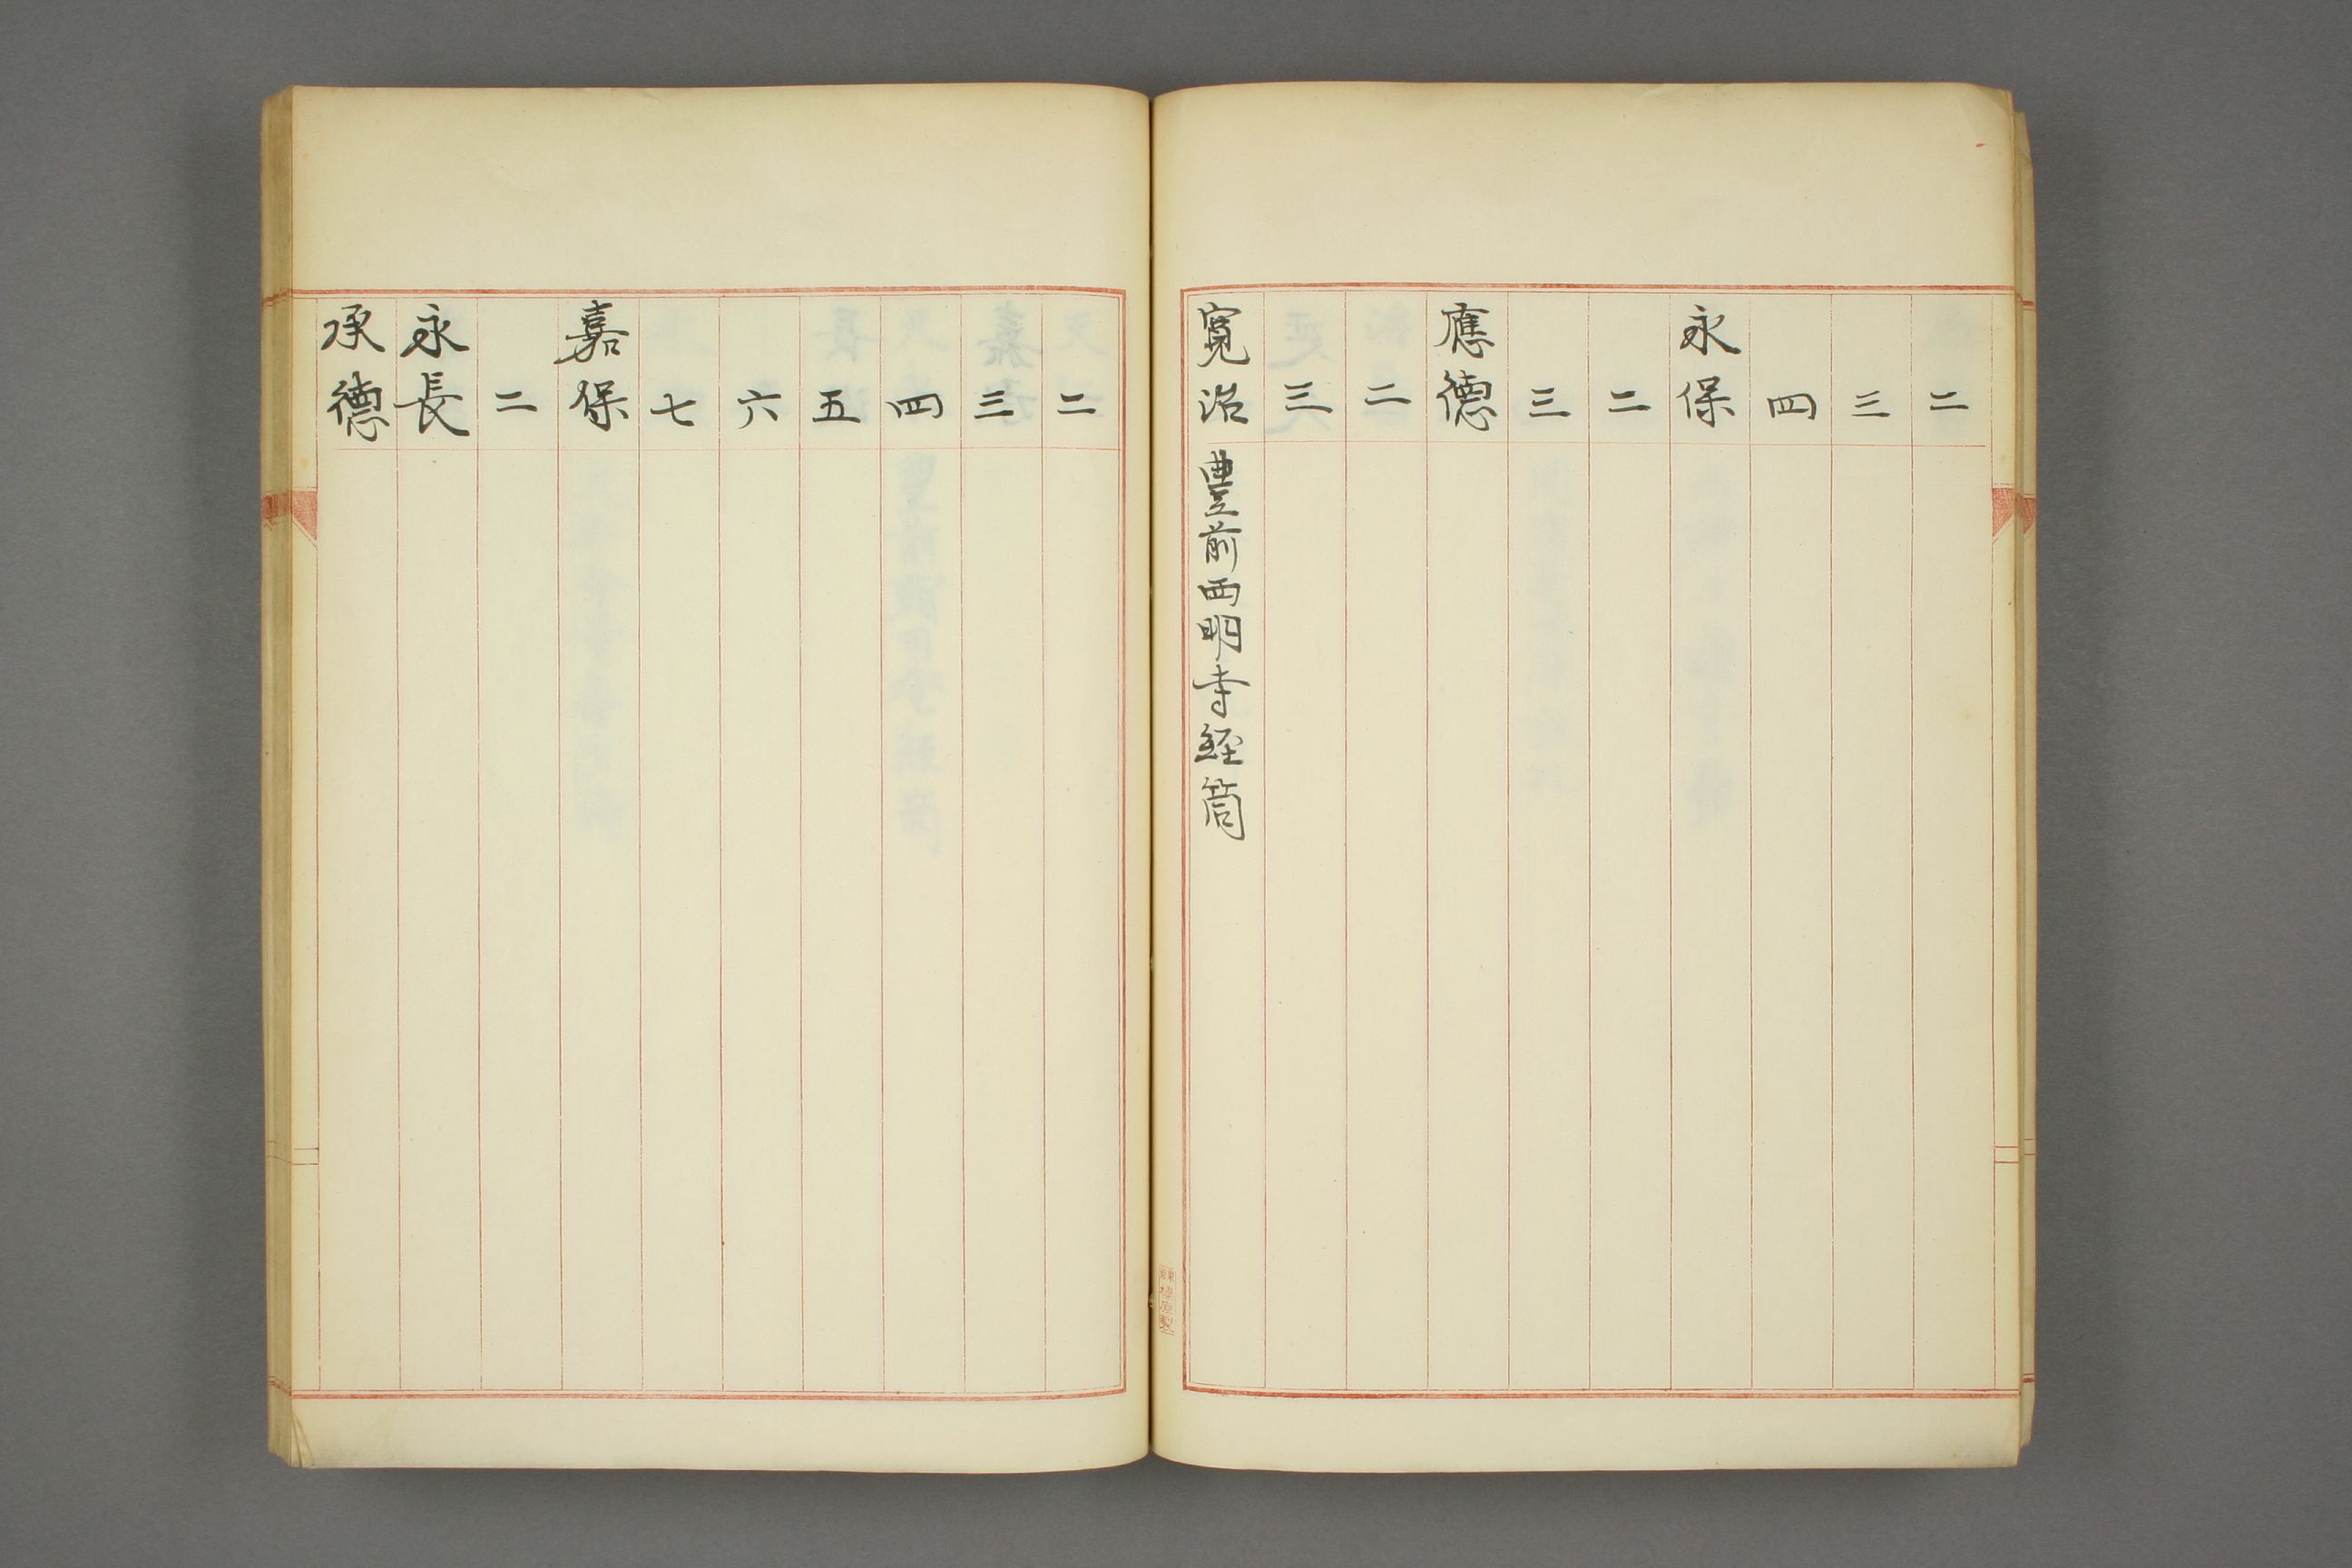 二
三
四
永保
二
三
應德
二
三
寛治 豊前西明寺経筒
二
三
四
五
六
七
嘉保
二
永長
承德